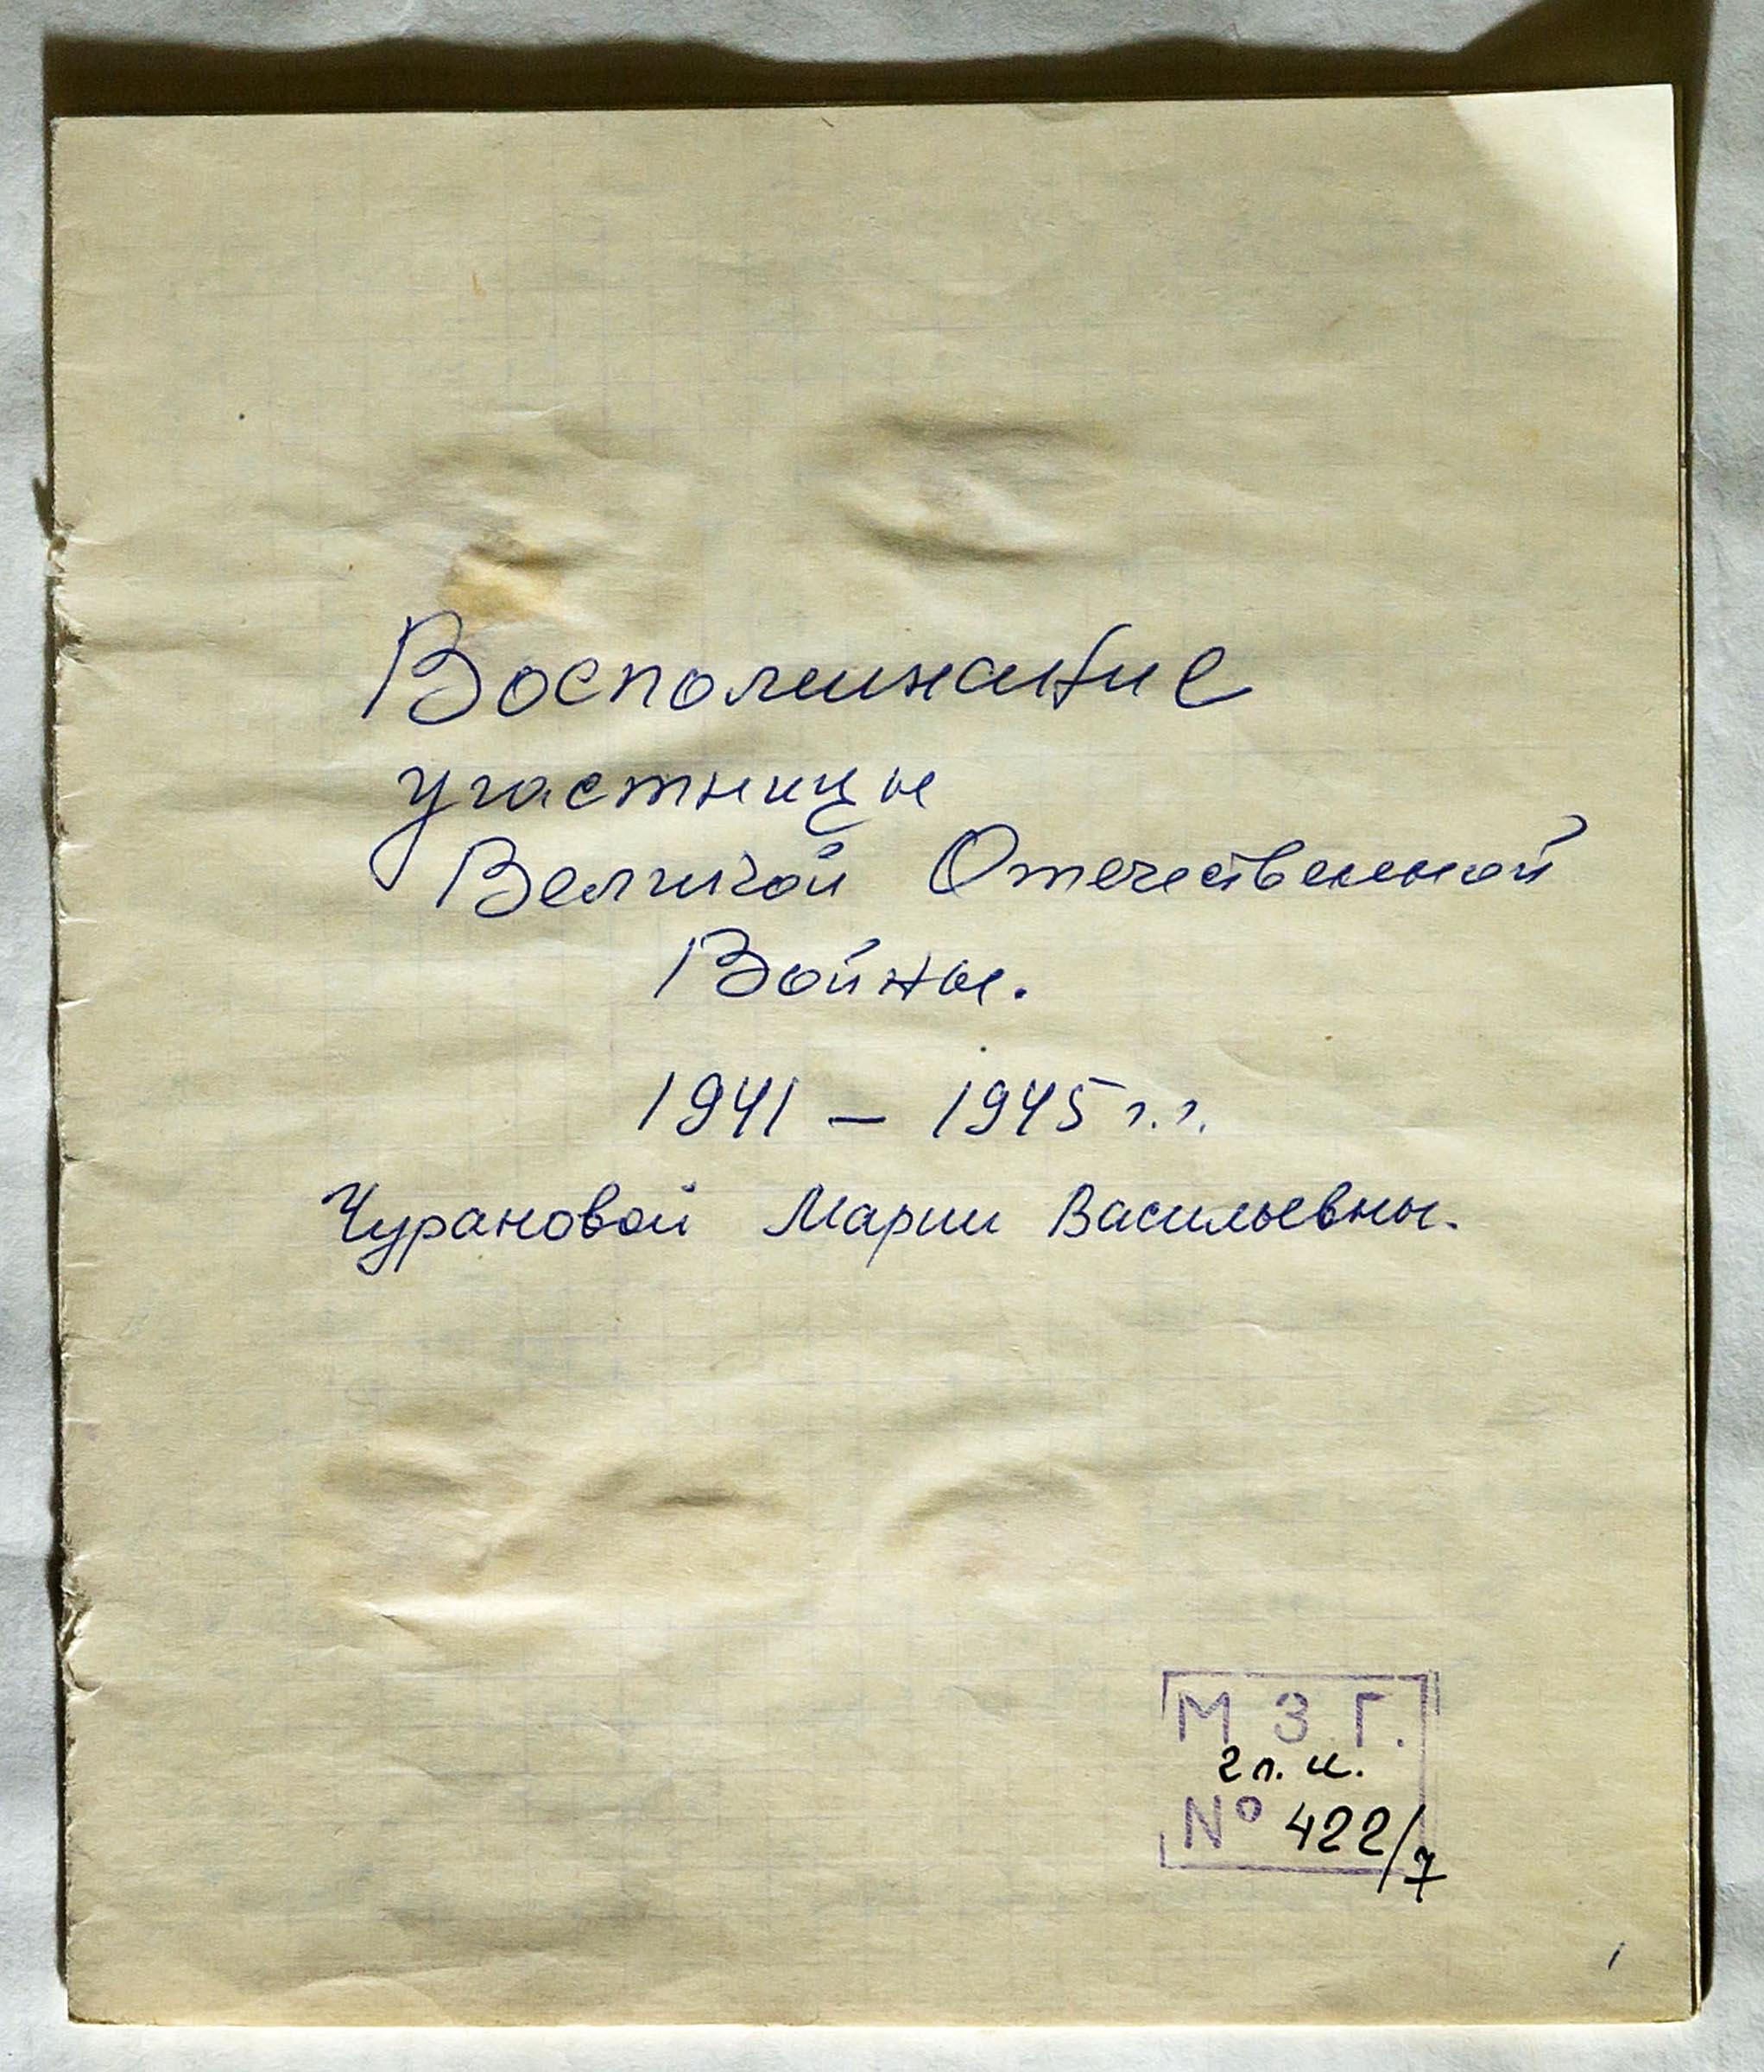 Воспоминание
участницы
Великой Отечественной
Войны.
1941 – 1945 г.г.
Чурановой Марии Васильевны.
М З Г.
гл. и.
№ 422/7
1